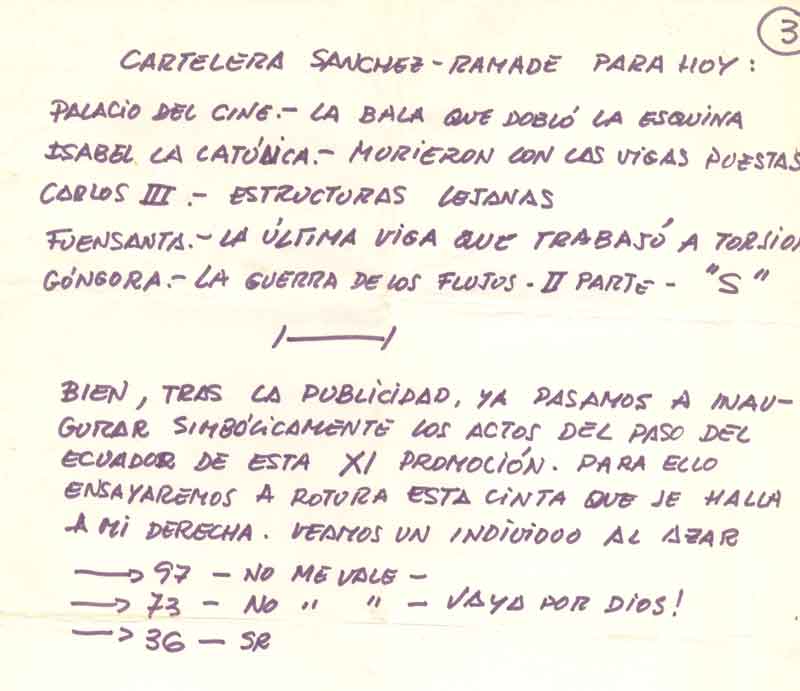 3
CARTELERA SANCHEZ-RAMADE PARA HOY:
PALACIO DEL CINE.- LA BALA QUE DOBLÓ LA ESQUINA
ISABEL LA CATÓLICA.- MURIERON CON LAS VIGAS PUESTAS
CARLOS III.- ESTRUCTURAS LEJANAS
FUENSANTA.- LA ÚLTIMA VIGA QUE TRABAJÓ A TORSION
GÓNGORA.- LA GUERRA DE LOS FLUJOS - II PARTE - "S"
BIEN, TRAS LA PUBLICIDAD, YA PASAMOS A INAU-
GURAR SIMBÓLICAMENTE LOS ACTOS DEL PASO DEL
ECUADOR DE ESTA XI PROMOCIÓN. PARA ELLO
ENSAYAREMOS A ROTURA ESTA CINTA QUE SE HALLA
A MI DERECHA. VEAMOS UN INDIVIDUO AL AZAR
→ 97 - NO ME VALE -
→ 73 - NO " " - VAYA POR DIOS!
→ 36 - SR